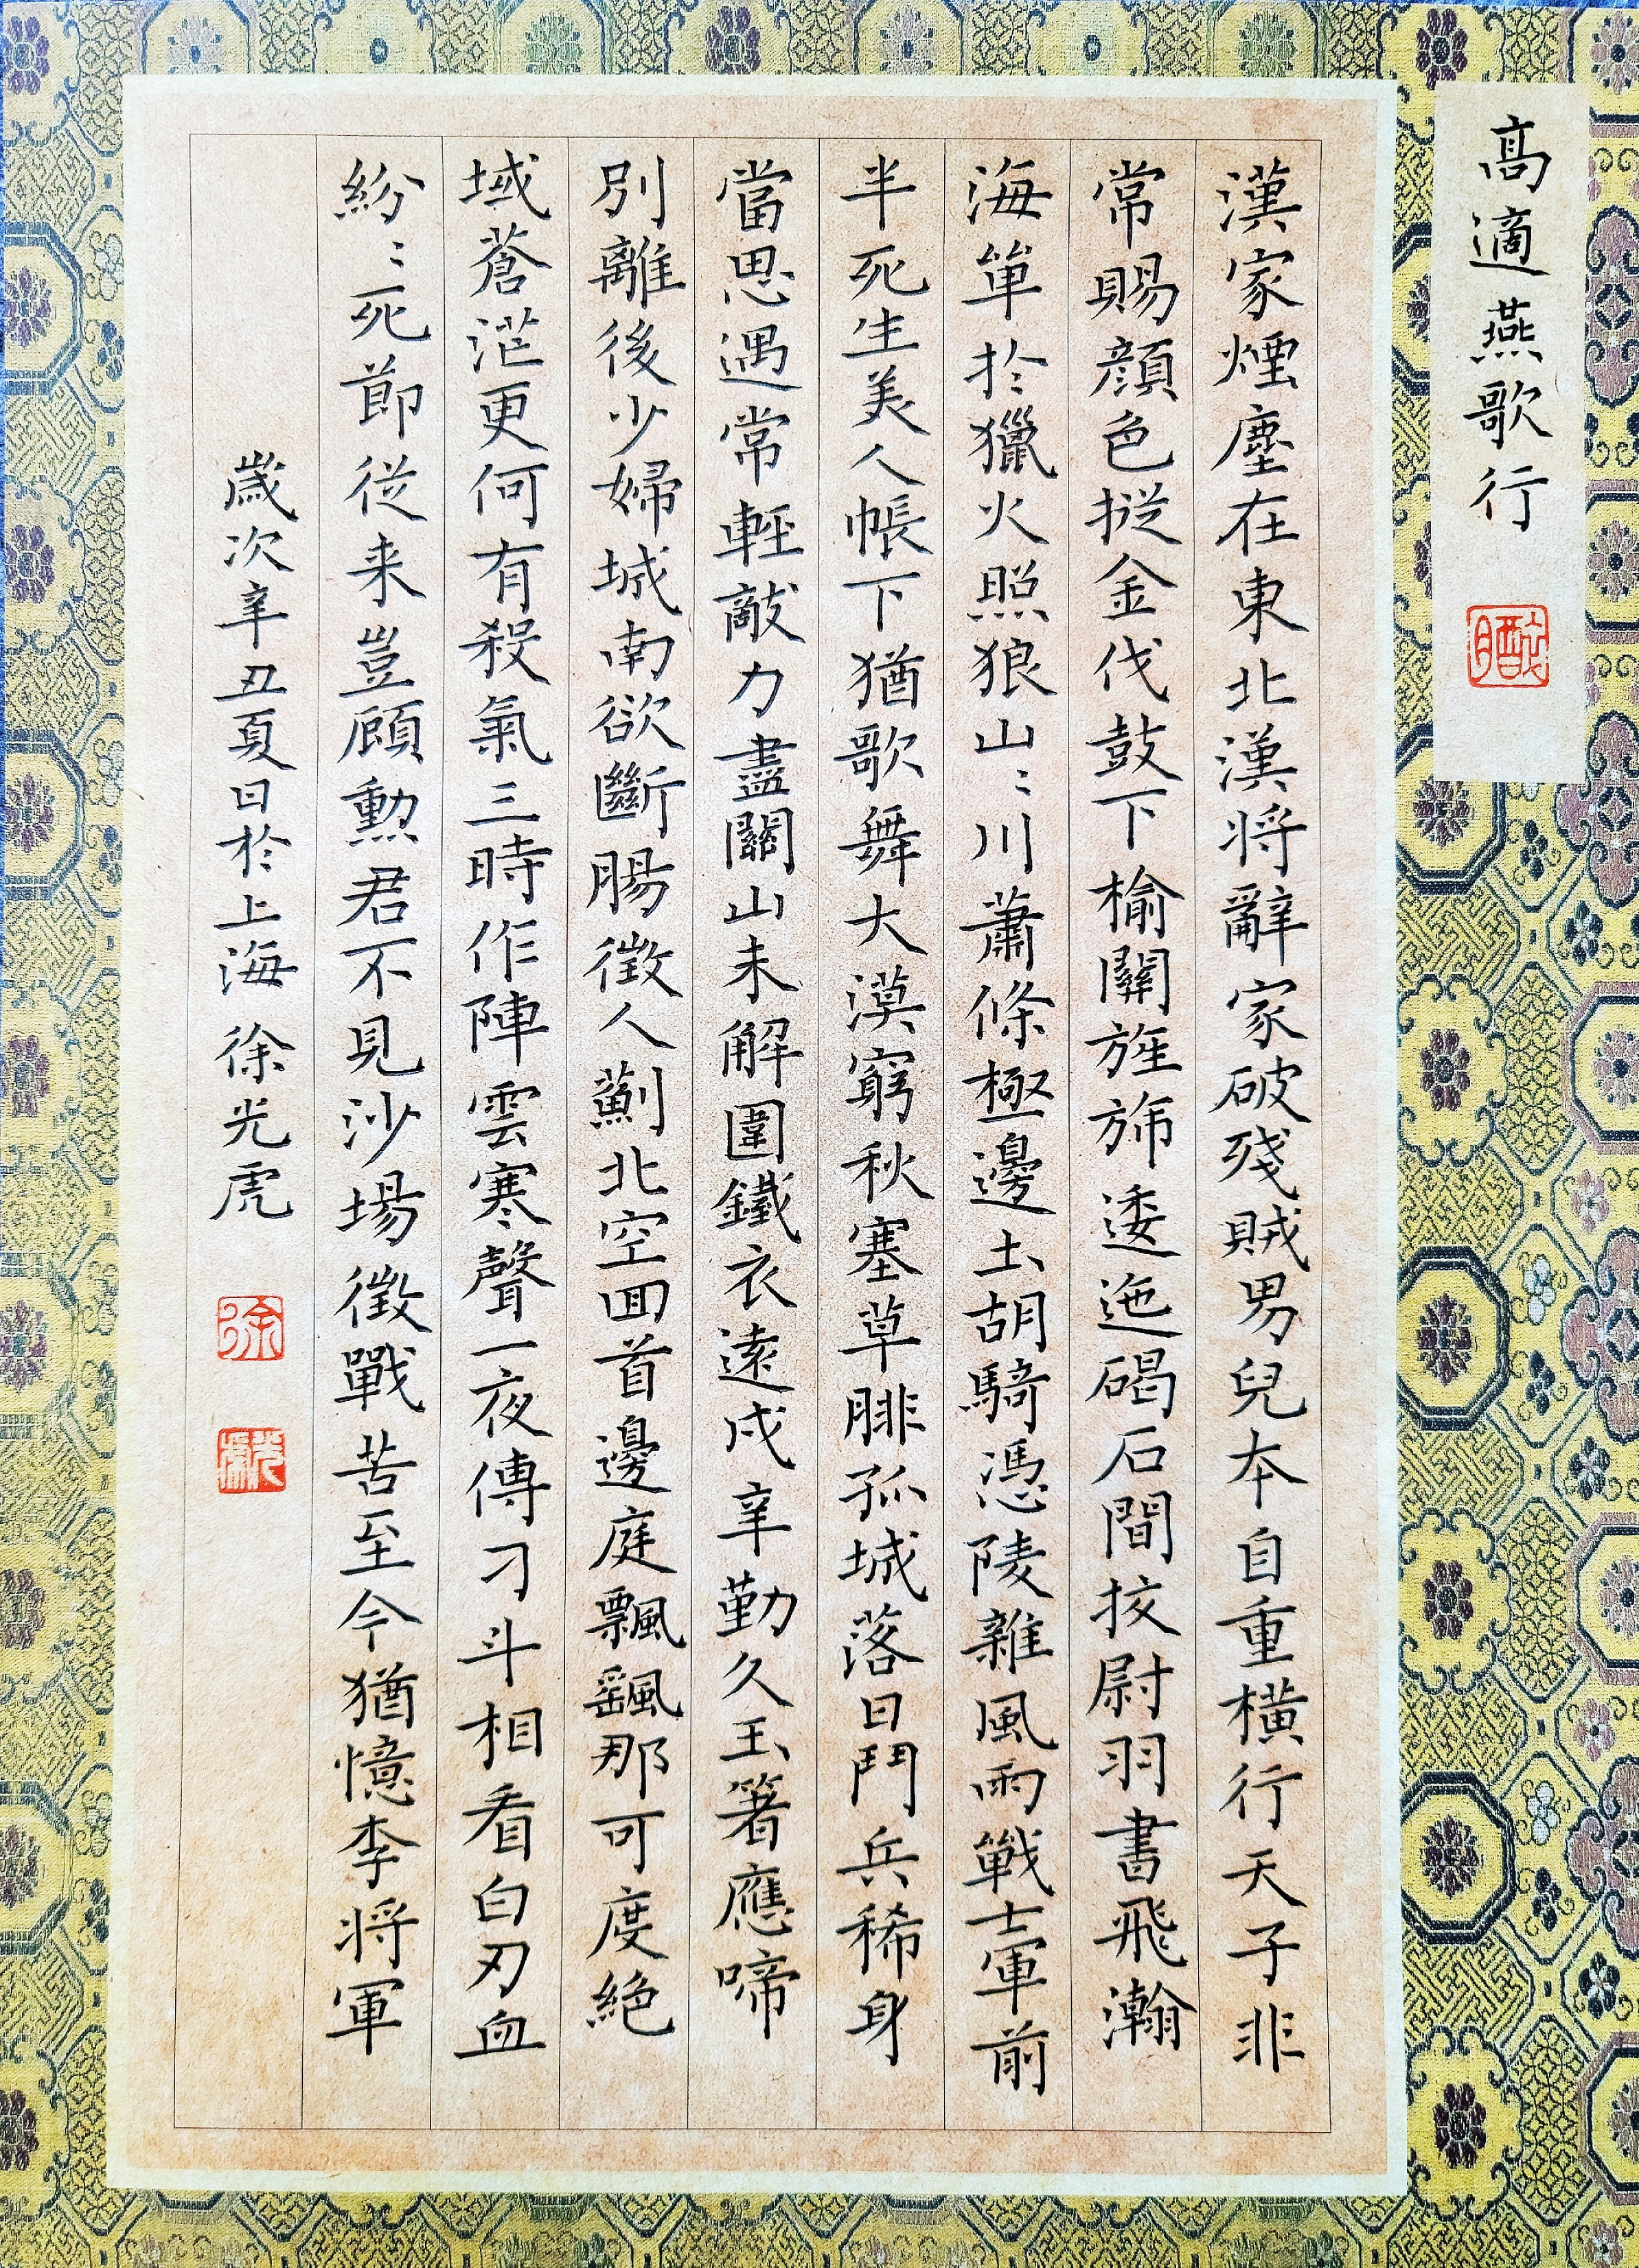 高適燕歌行
漢家煙塵在東北漢将辭家破殘賊男兒夲自重橫行天子非
常賜顔色摐金伐鼓下榆關旌斾逶迤碣石間挍尉羽書飛瀚
海單於獵火照狼山〻川蕭條極邊土胡騎憑陵雜風雨戰士軍前
半死生美人帳下猶歌舞大漠窮秋塞草腓孤城落日鬥兵稀身
當恩遇常輕敵力盡關山未解圍鐵衣遠戍辛勤久玉箸應啼
別離後少婦城南欲斷腸徵人薊北空回首邊庭飄颻那可度絕
域蒼茫更何有殺氣三時作陣雲寒聲一夜傳刁斗相看白刃血
紛〻死節從来豈顧勳君不見沙場徵戰苦至今猶憶李将軍
歲次辛丑夏日於上海 徐光虎
徐
光虎